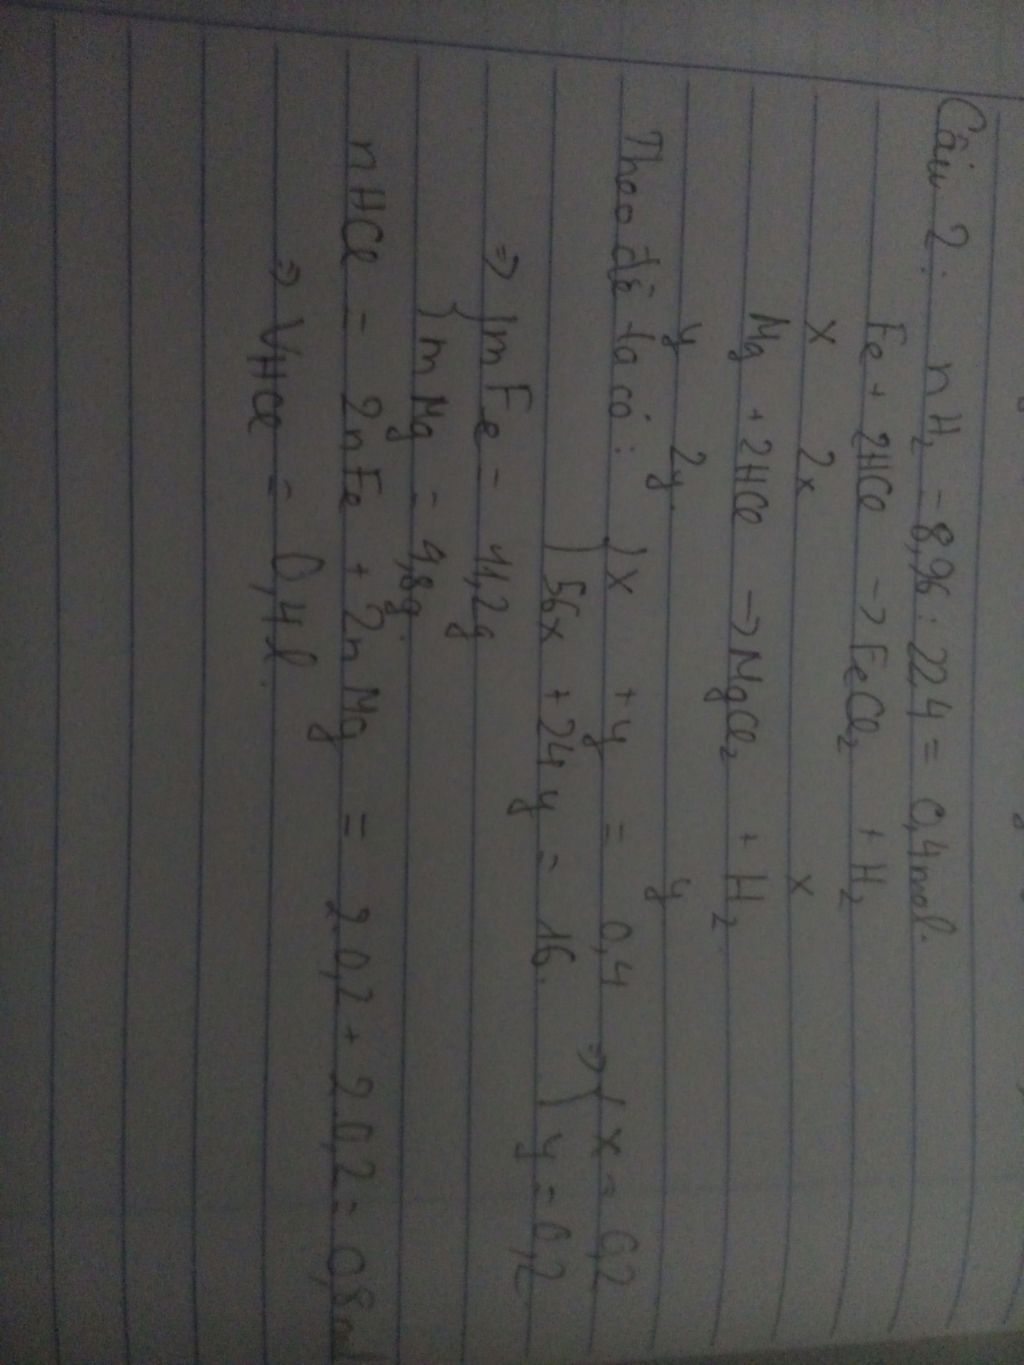 Câu 2: nH₂ = 8,96 : 22,4 = 0,4mol.
Fe + 2HCl → FeCl₂ + H₂
x 2x x
Mg + 2HCl → MgCl₂ + H₂
y 2y y
Theo đề ta có: { x + y = 0,4 ⇒ { x = 0,2
{ 56x + 24y = 16. { y = 0,2
⇒ { mFe = 11,2g
{ mMg = 4,8g.
nHCl = 2nFe + 2nMg = 2.0,2 + 2.0,2 = 0,8mol
⇒ VHCl = 0,4l.